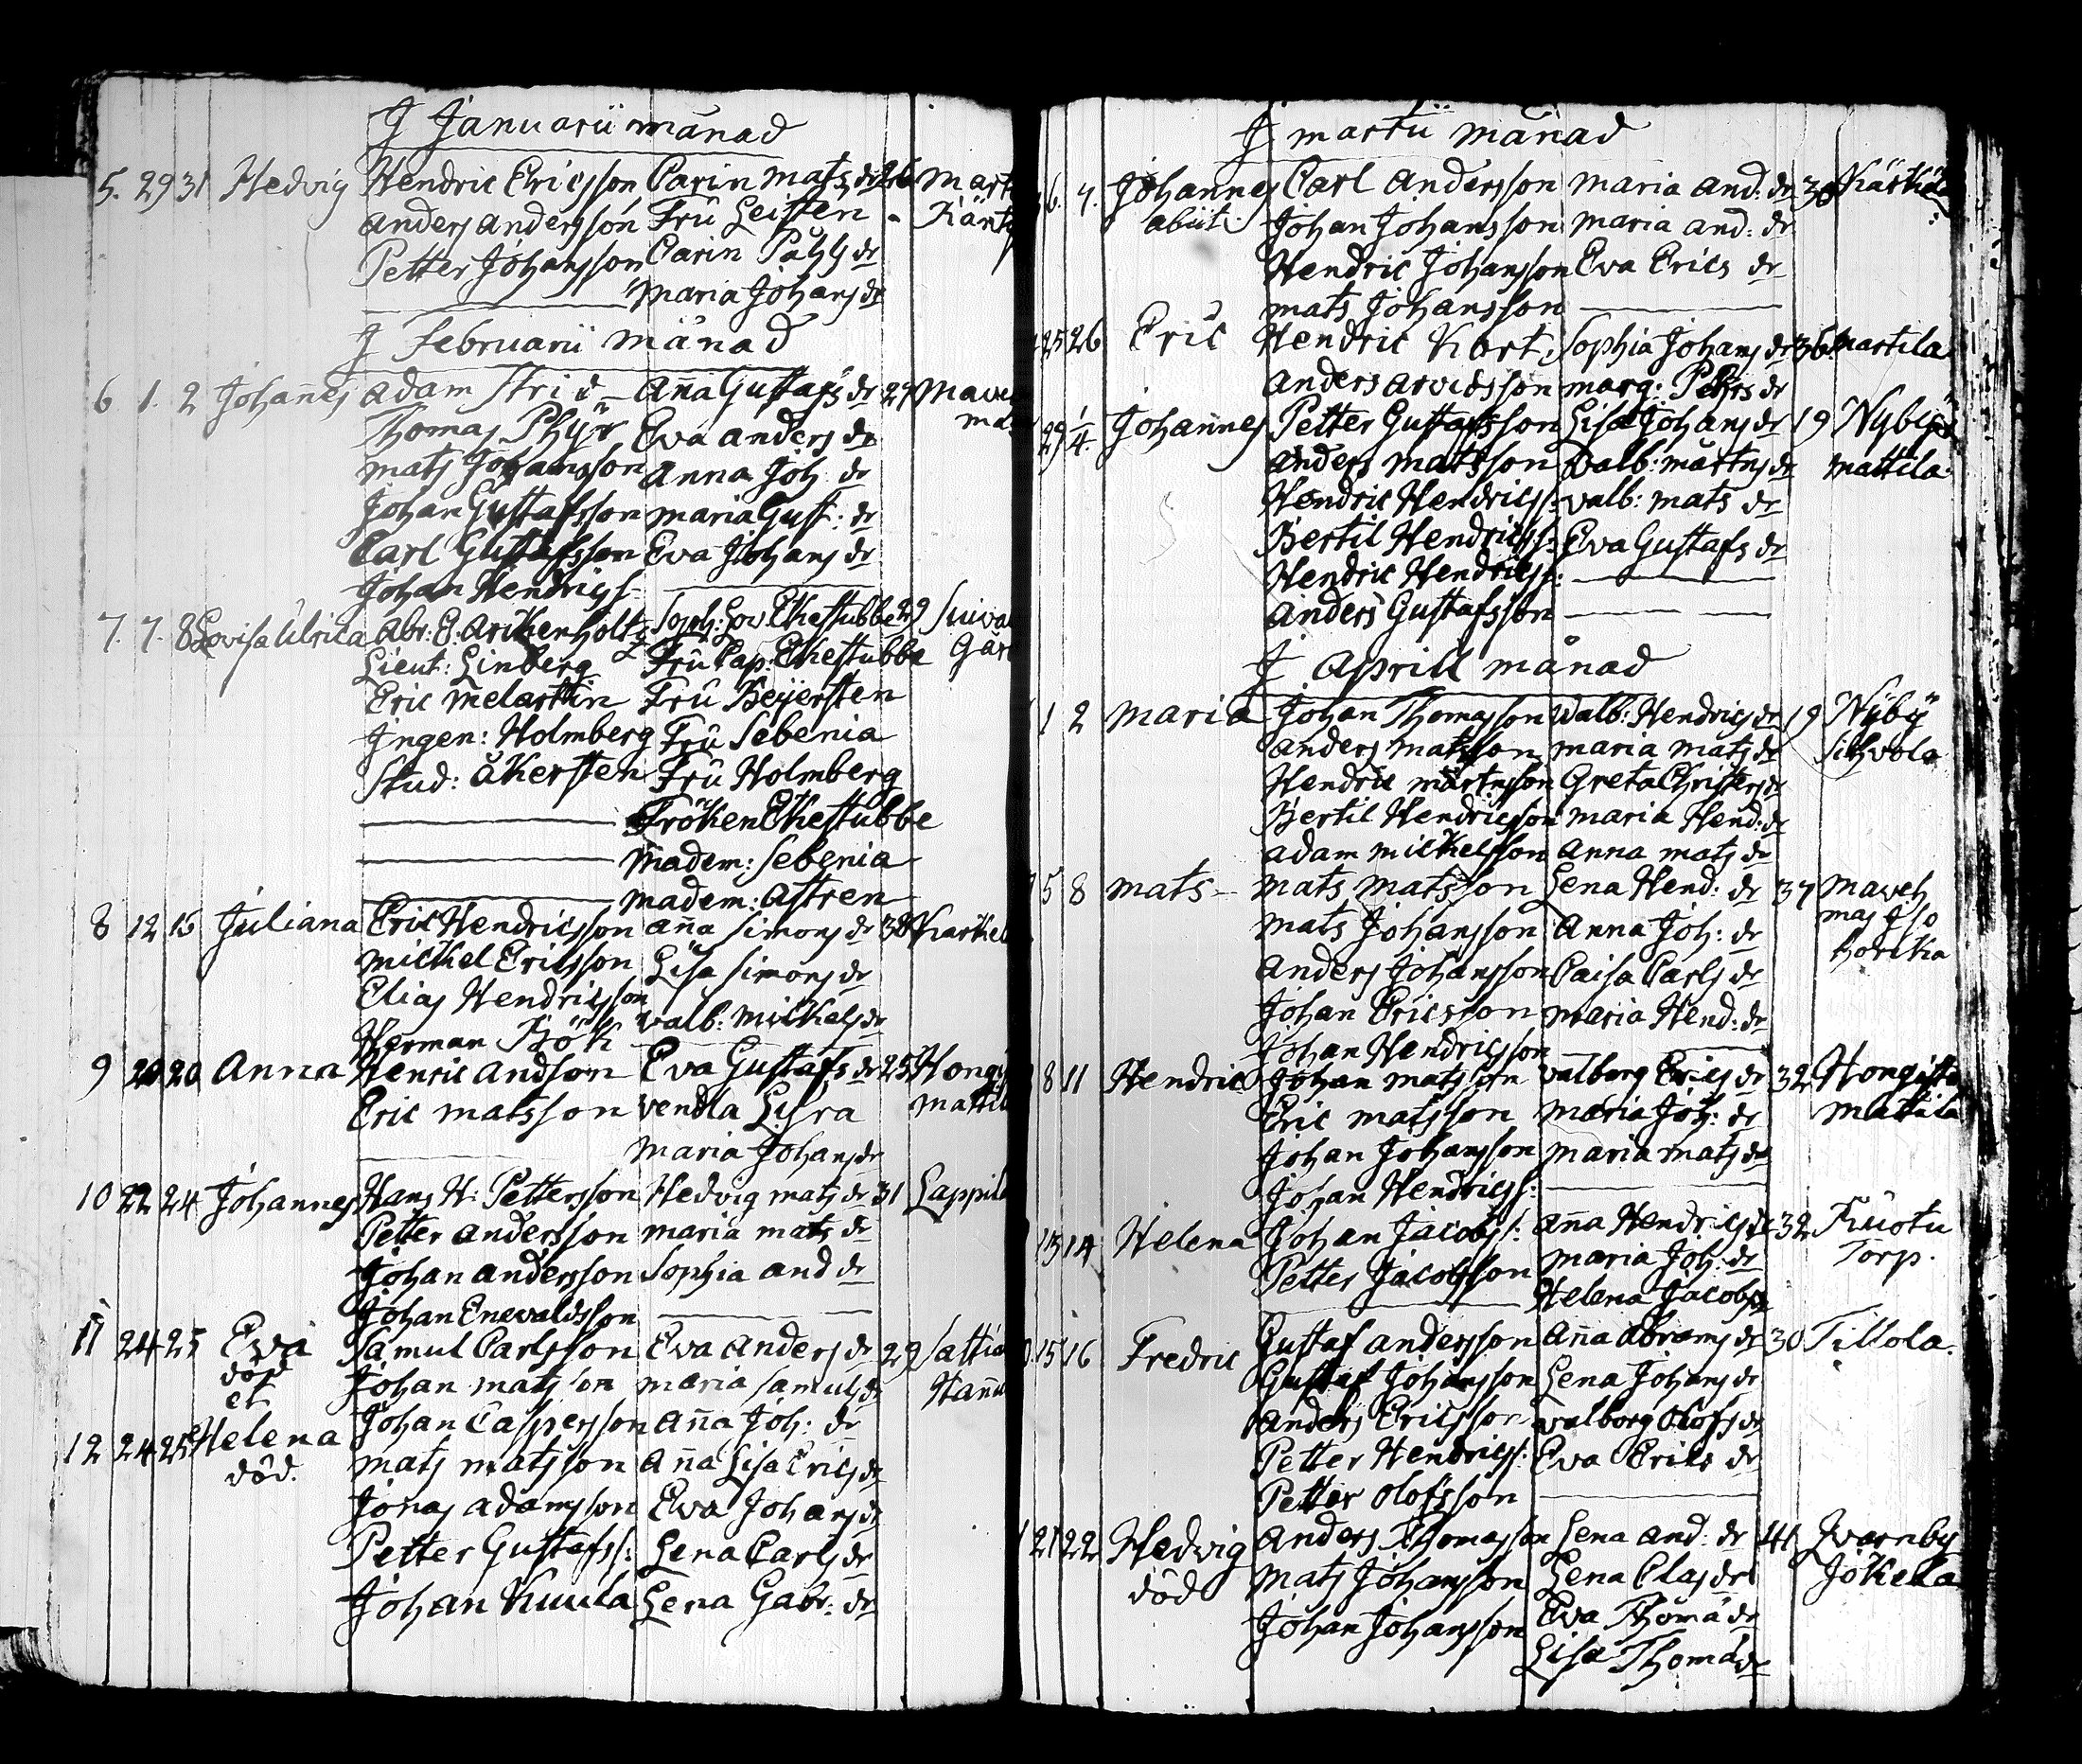 J Januarii månad
5. 29 31 Hedvig Hendric Ericsson Carin mats dr 26 Mart
anders andersson Fru Leisten Kärt
Petter Johansson Carin Påhls dr
Maria Johans dr
J Februarii månad
6 1. 2 Johannes adam Strid Anna Gustafs dr 27
Thomas Eva anders dr
mats Johansson Anna Joh dr
Johan Gustafsson maria Gust: dr
Carl Gustafsson Eva Johans dr
Johan Hendricss
7. 7. 8 Lovisa Ulrica Abr: E. Arckenholtz Soph: Lov Ekestubbe 29
Lieut: Linberg Fru Cap: Ekestubbe
Eric Melartin Fru Beijersten
Ingen: Holmberg Fru Sebenia
Stud: Åkersten Fru Holmberg
Fröken Ekestubbe
Madem: Sebenia
Madem: Astren
8 12 15 Juliana Eric Hendricsson anna Simons dr 38
Mickel Ericsson Lisa Simons dr
Elias Hendricsson valb: Mickels dr
Herman Böök
9 20 20 Anna Henric andson Eva Gustafs dr 25
Eric matsson vendla
Maria Johans dr
10 22 24 Johannes Hans H: Pettersson Hedvig mats dr 31
Petter andersson maria mats dr
Johan andersson Sophia and dr
Johan Enevaldsson
11 24 25 Eva Samul Carlsson Eva anders dr 29
död Johan matsson maria samuls dr
et Johan Caspersson anna Joh: dr
12 24 25 Helena mats matsson Anna Lisa Erics dr
död. Jonas adamsson Eva Johans dr
Petter Gustafss: Lena Carls dr
Johan Kuula Lena Gabr: dr
J martii månad
6. 7. Johannes Carl andersson maria and: dr 38
abiit Johan Johansson maria and: dr
Hendric Johansson Eva Erics dr
mats Johansson
25 26 Eric Hendric Kort Sophia Johans dr 36 Martila
anders arvidsson marg: Pehrs dr
29 1/4. Johannes Petter Gustafsson Lisa Johans dr 19
anders matsson valb: mårtens dr mattila
Hendric Hendricss: valb: mats dr
Bertil Hendricss: Eva Gustafs dr
Hendric Hendricss:
anders Gustafsson
J Aprill månad
1 2 maria Johan Thomasson valb: Hendrics dr 19 Nyby
anders matsson maria mats dr Sihvola
Hendric mårtensson Greta Christers dr
Bertil Hendricsson maria Hend: dr
adam mickelsson anna mats dr
5 8 mats mats matsson Lena Hend: dr 37
mats Johansson Anna Joh: dr
anders Johansson Caisa Carls dr
Johan Ericsson maria Hend: dr
Johan Hendricsson
8 11 Hendric Johan matsson valborg Erics dr 32 Hongisto
Eric matsson maria Joh: dr mattila
Johan Johansson maria mats dr
Johan Hendricss:
13 14 Helena Johan Jacobss: anna Hendrics dr 32 Kuotu
Petter Jacobsson maria Joh: dr Torp.
Helena Jacobs dr
15 16 Fredric Gustaf andersson anna abrams dr 30 Tillola.
Gustaf Johansson Lena Johans dr
anders Ericsson valborg Olofs dr
Petter Hendricss: Eva Erics dr
Petter Olofsson
21 22 Hedvig anders Thomasson Lena and: dr 41 Qvarnby
död mats Johansson Lena Clas dr Jokela
Johan Johansson Eva Thoma dr
Lisa Thoma dr